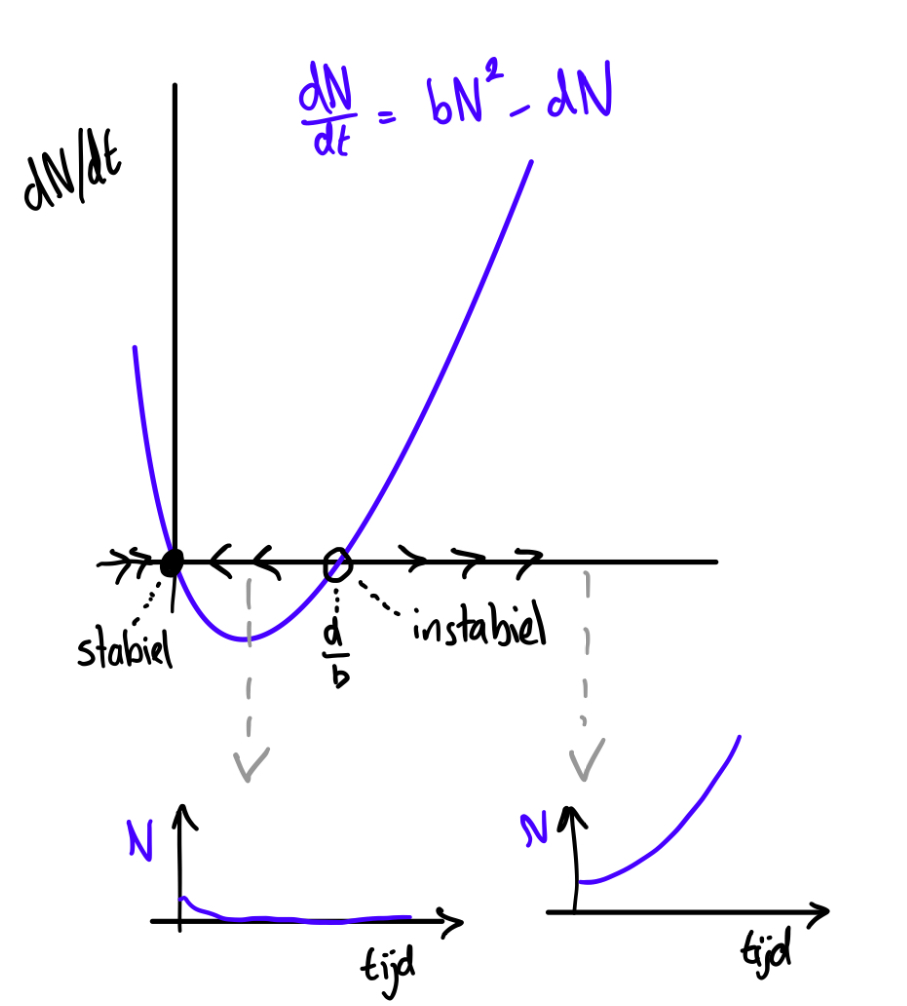 dN/dt = bN² - dN
dN/dt
stabiel
d/b
instabiel
N
tijd
N
tijd